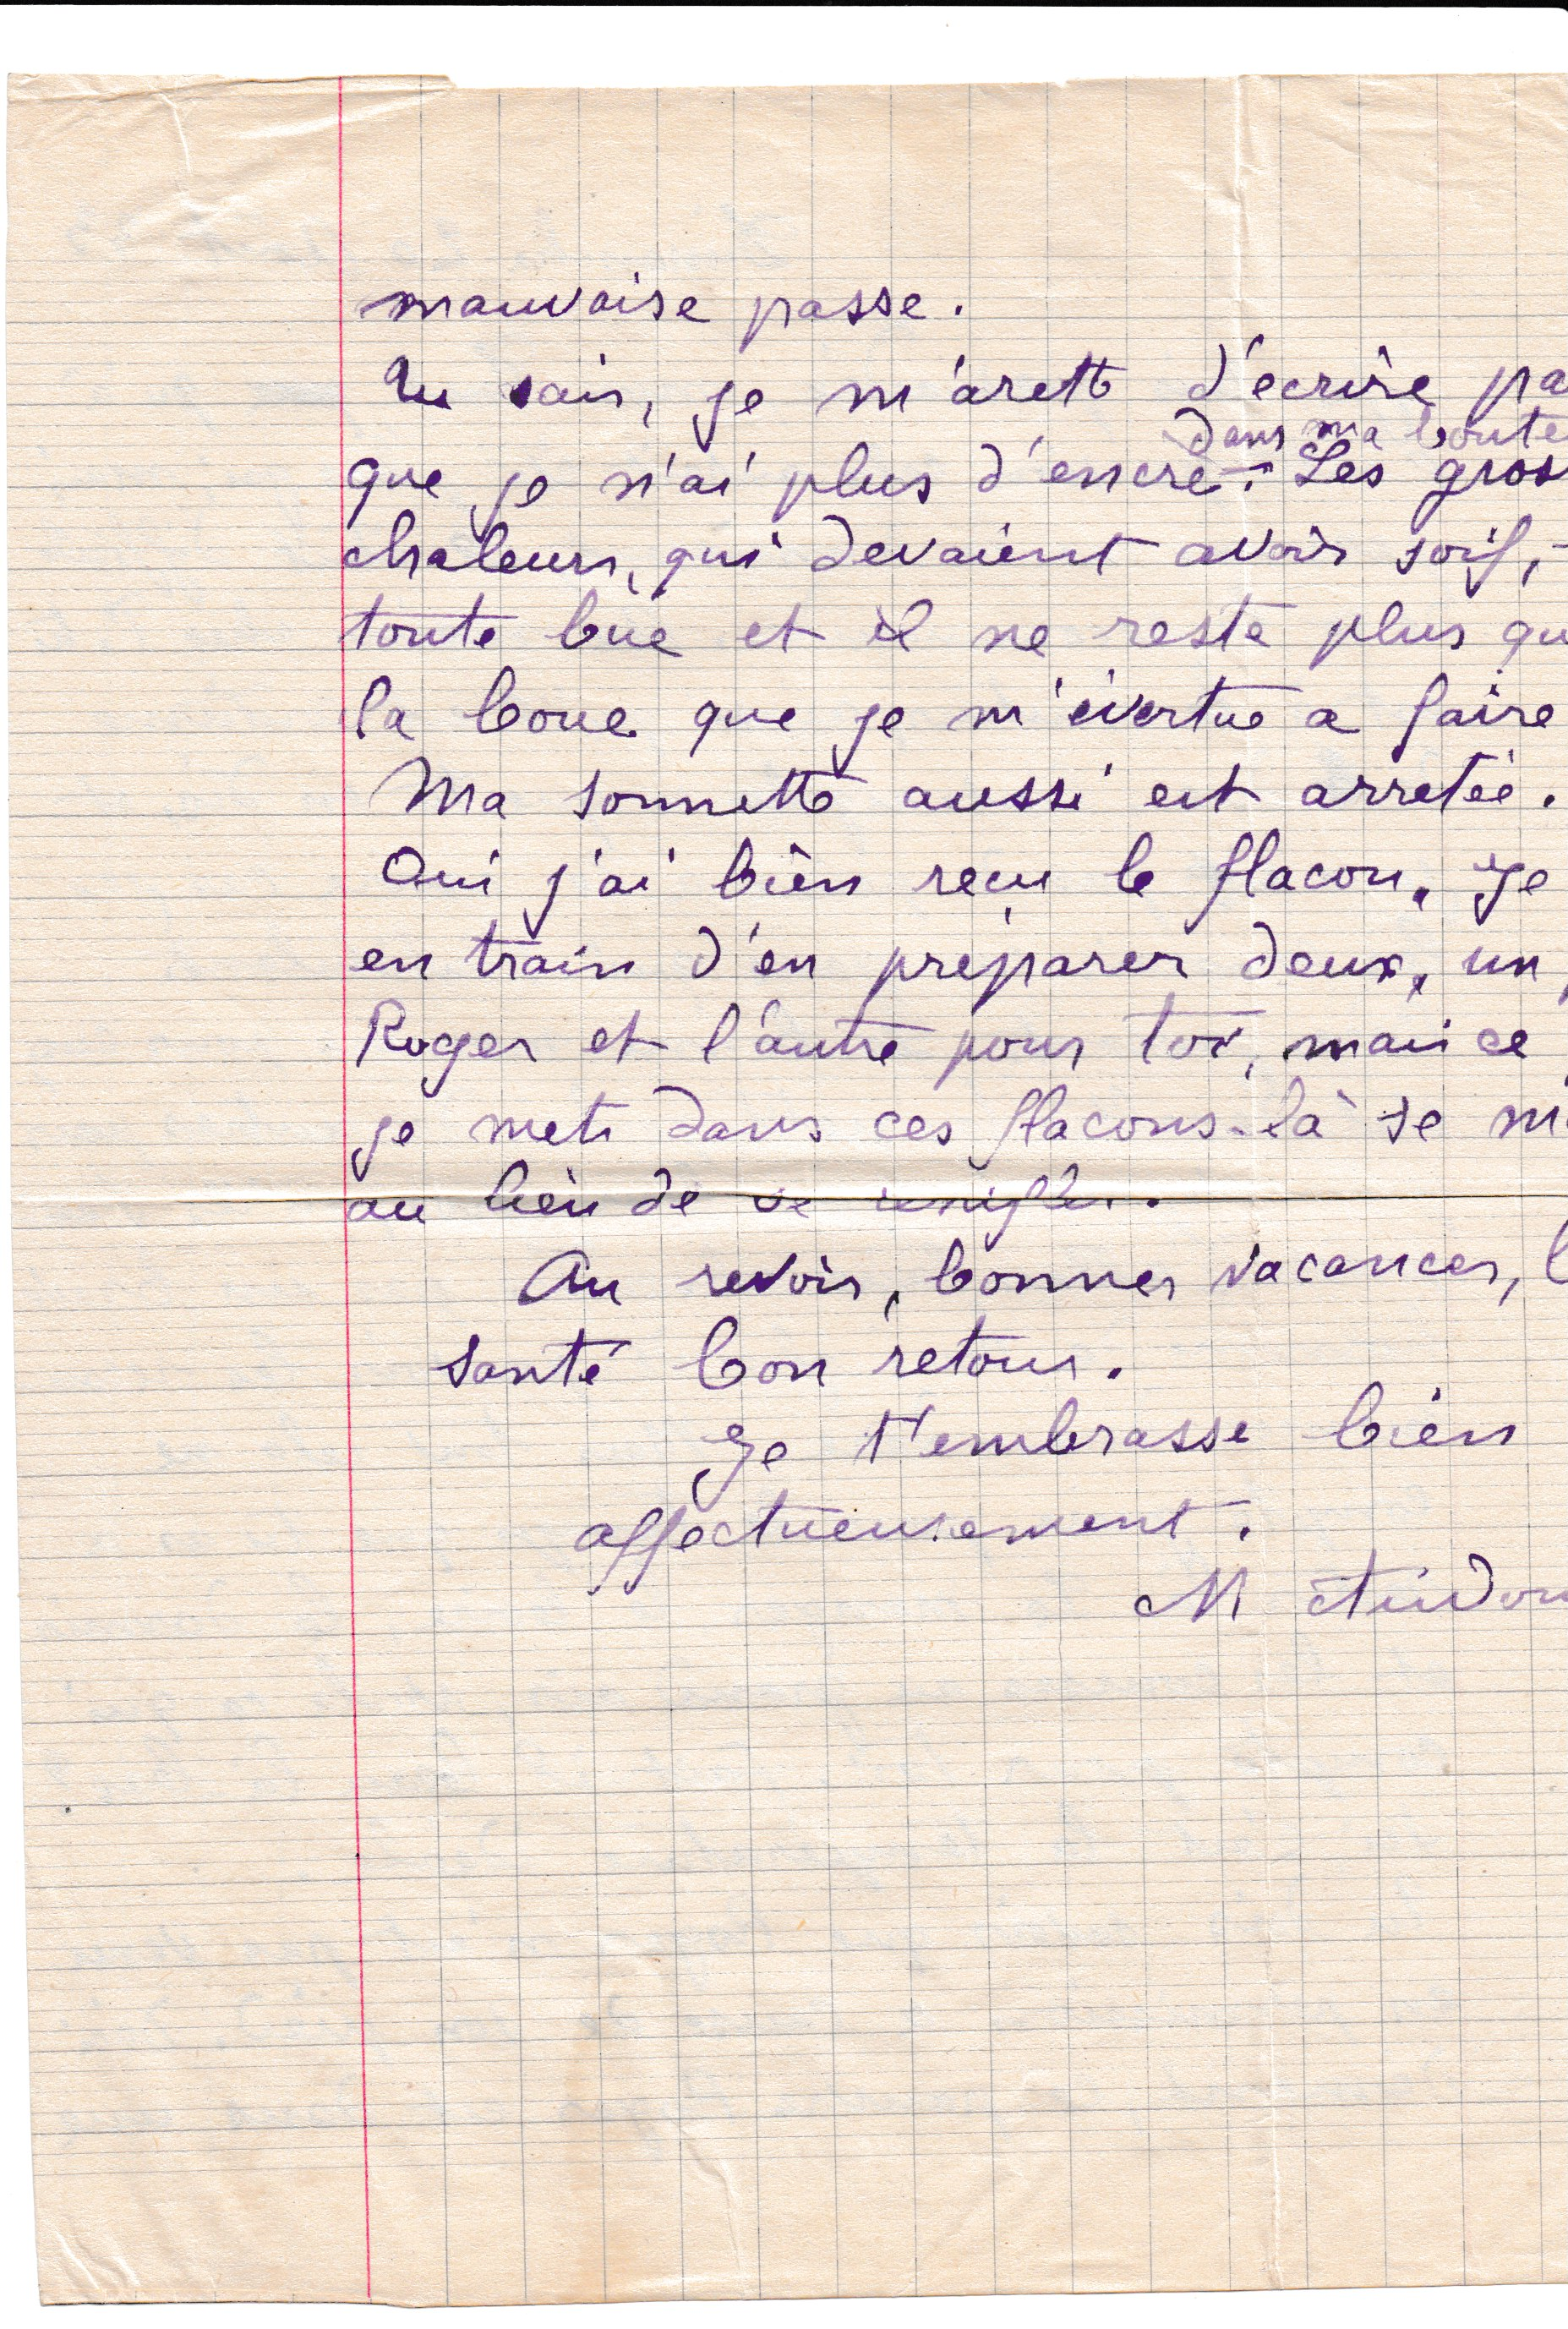 mauvaise passe.
Tu sais, je m'arette d'ecrire pa
dans ma boute
que je n'ai plus d'encre. Les gros
chaleurs, qui devaient avoir soif,
toute bue et il ne reste plus qu
la boue que je m'évertue a faire
Ma sonnette aussi est arretée.
Oui j'ai bien recu le flacon. Je
en train d'en préparer deux, un
Roger et l'autre pour toi, mais ce
je mets dans ces flacons-là se m
au lieu de se renifler.
Au revoir, bonnes vacances, b
santé bon retour.
Je t'embrasse bien
affectueusement.
M